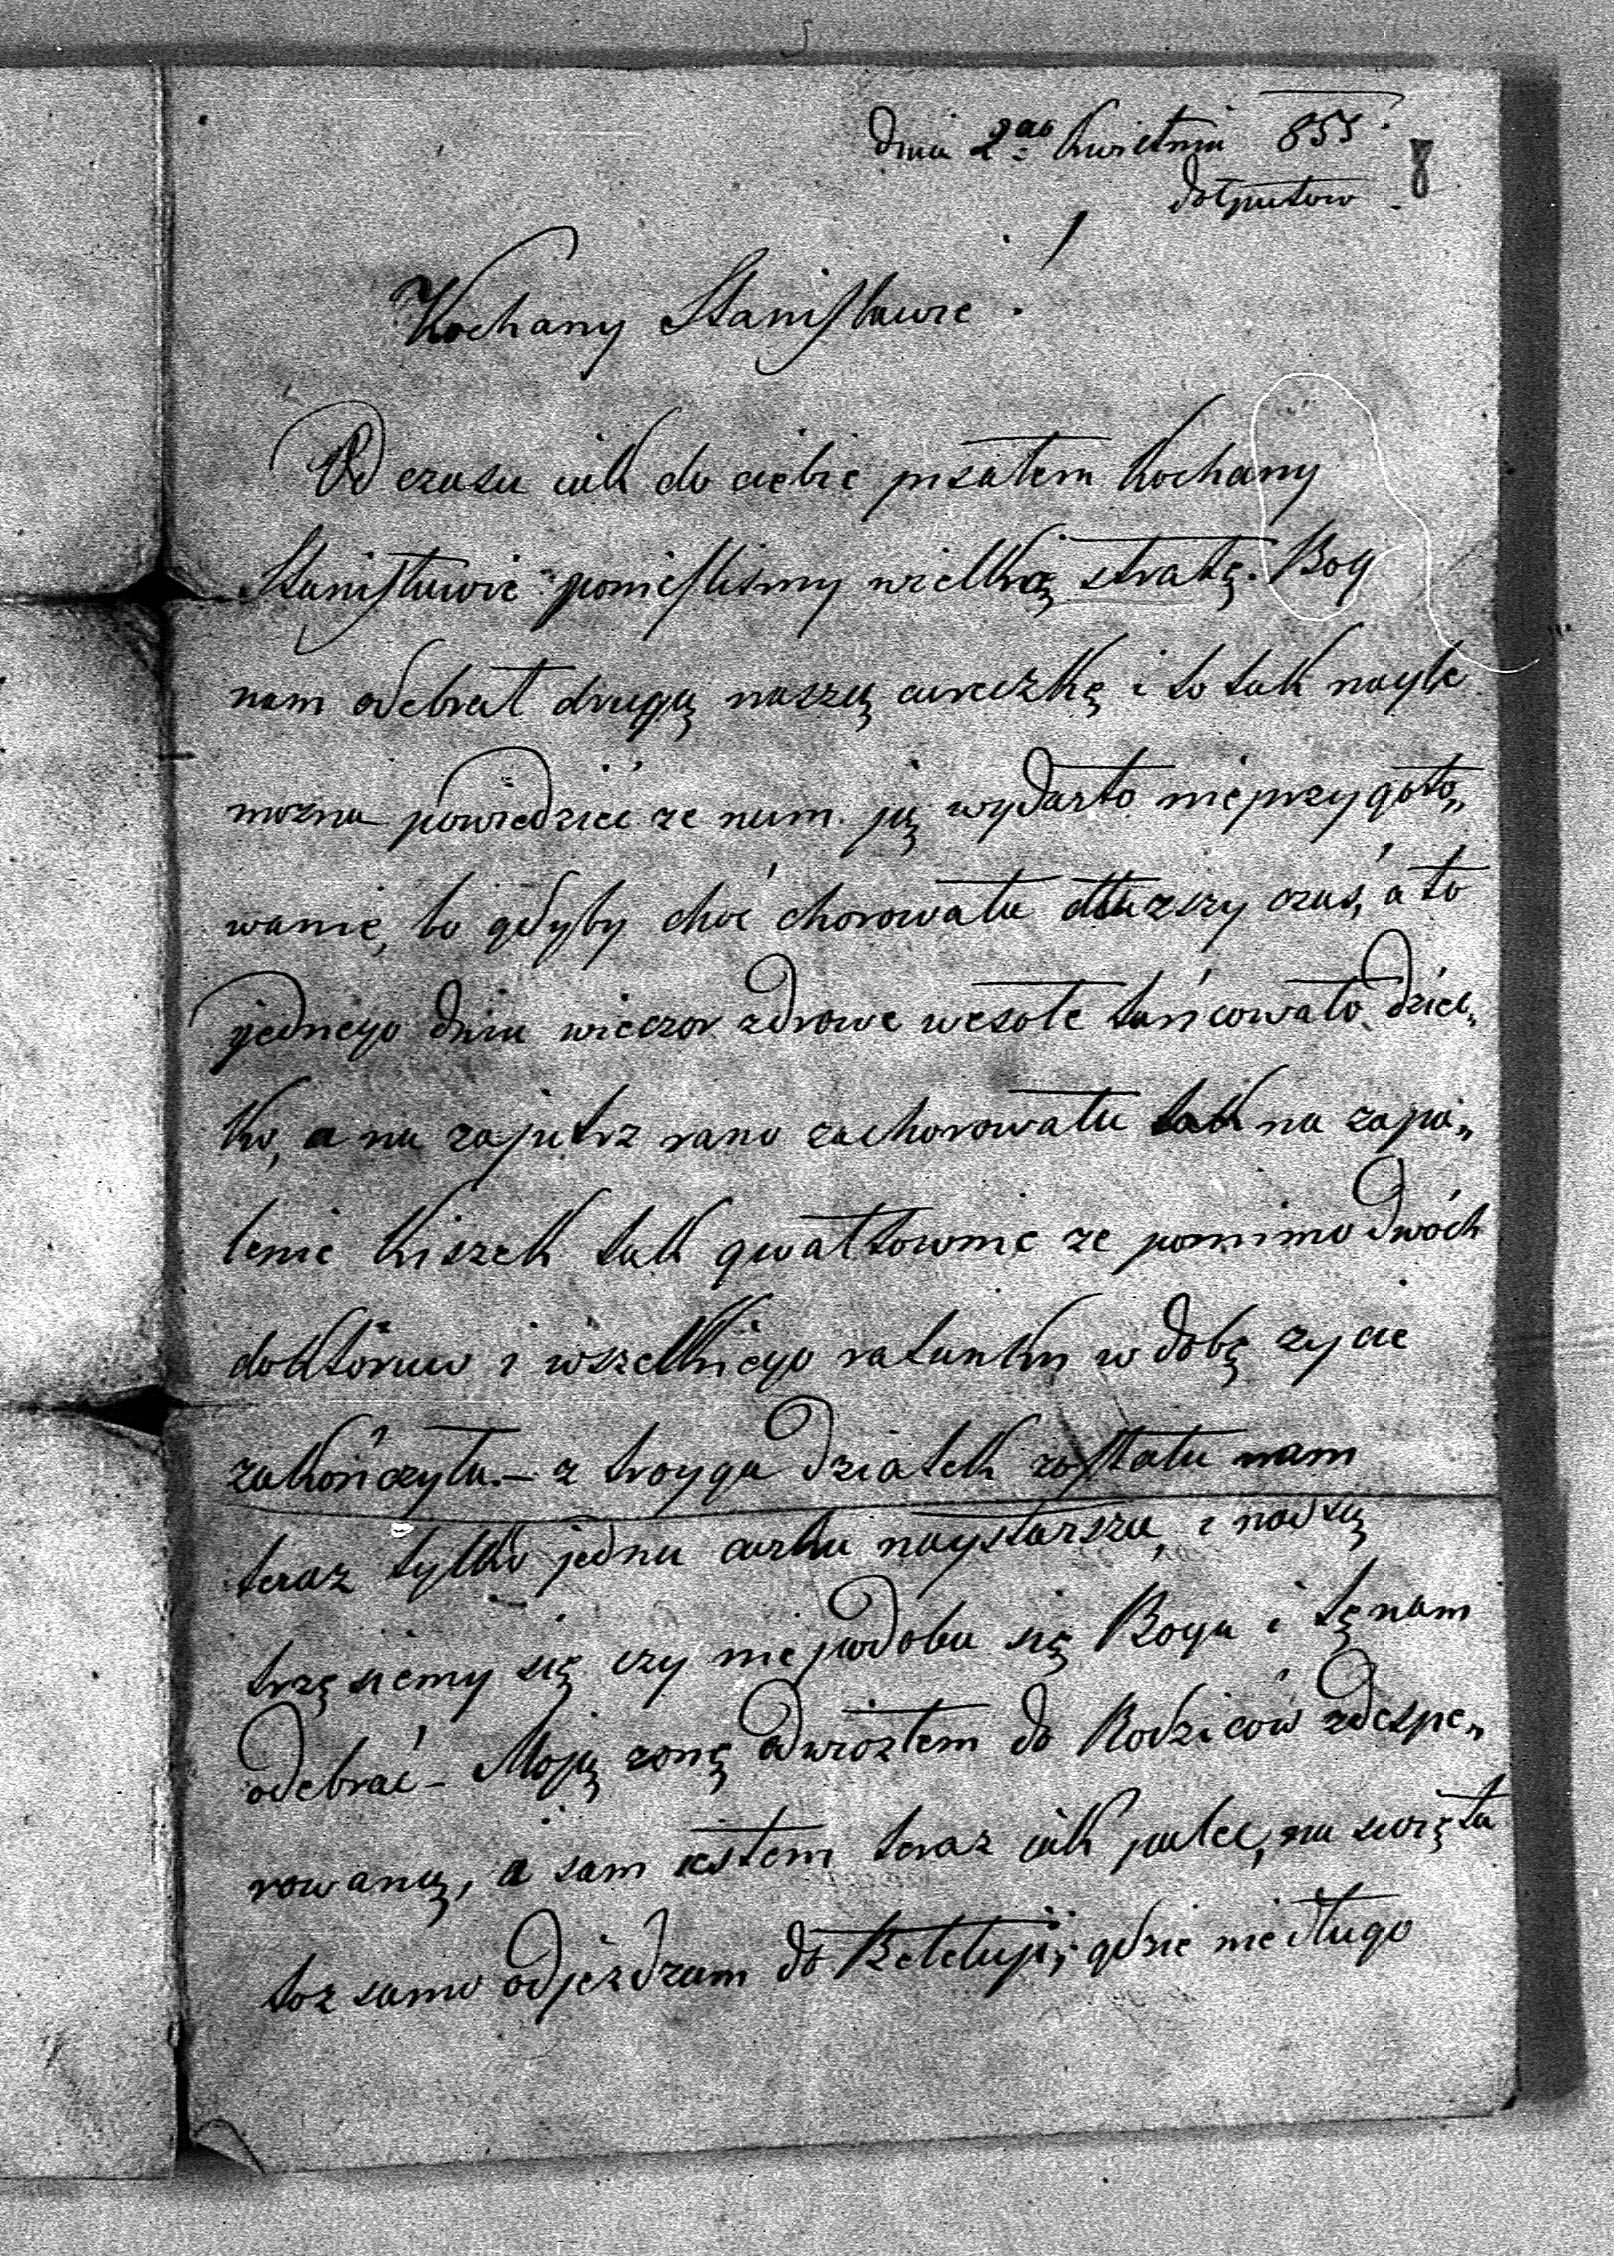 dnia 2go kwietnia 855
8
Kochany Stanisławie !
Od czasu iak do ciebie pisałem Kochany
Stanisławie ponieslismy wielką stratę. Bog
nam odebrał drugą naszą cureczkę i to tak nagle
mozna powiedzieć ze nam ją wydarto nieprzygoto„
wanie, bo gdyby choć chorowała dłuzszy czas, a to
jednego dnia wieczor zdrowe wesołe tańcowało dziec„
ko, a na zajutrz rano zachorowała tak na zapa„
lenie kiszek tak gwałtownie ze pomimo dwóch
doktoruw i wszelkiego ratunku w dobę zycie
zakończyła.— z troyga dziatek została nam
teraz tylko jedna curka naystarsza, i nad tą
trzęsiemy się czy nie podoba się Bogu i tę nam
odebrać— Moją zonę odwiozłem do Rodziców zdespe„
rowaną, a sam iestem teraz iak palec, na swięta
toz samo odjezdzam do Beletuji, gdzie niedługo